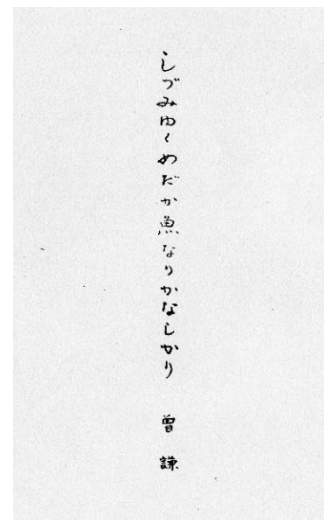 しづみゆくめだか魚なりかなしかり 曽謙